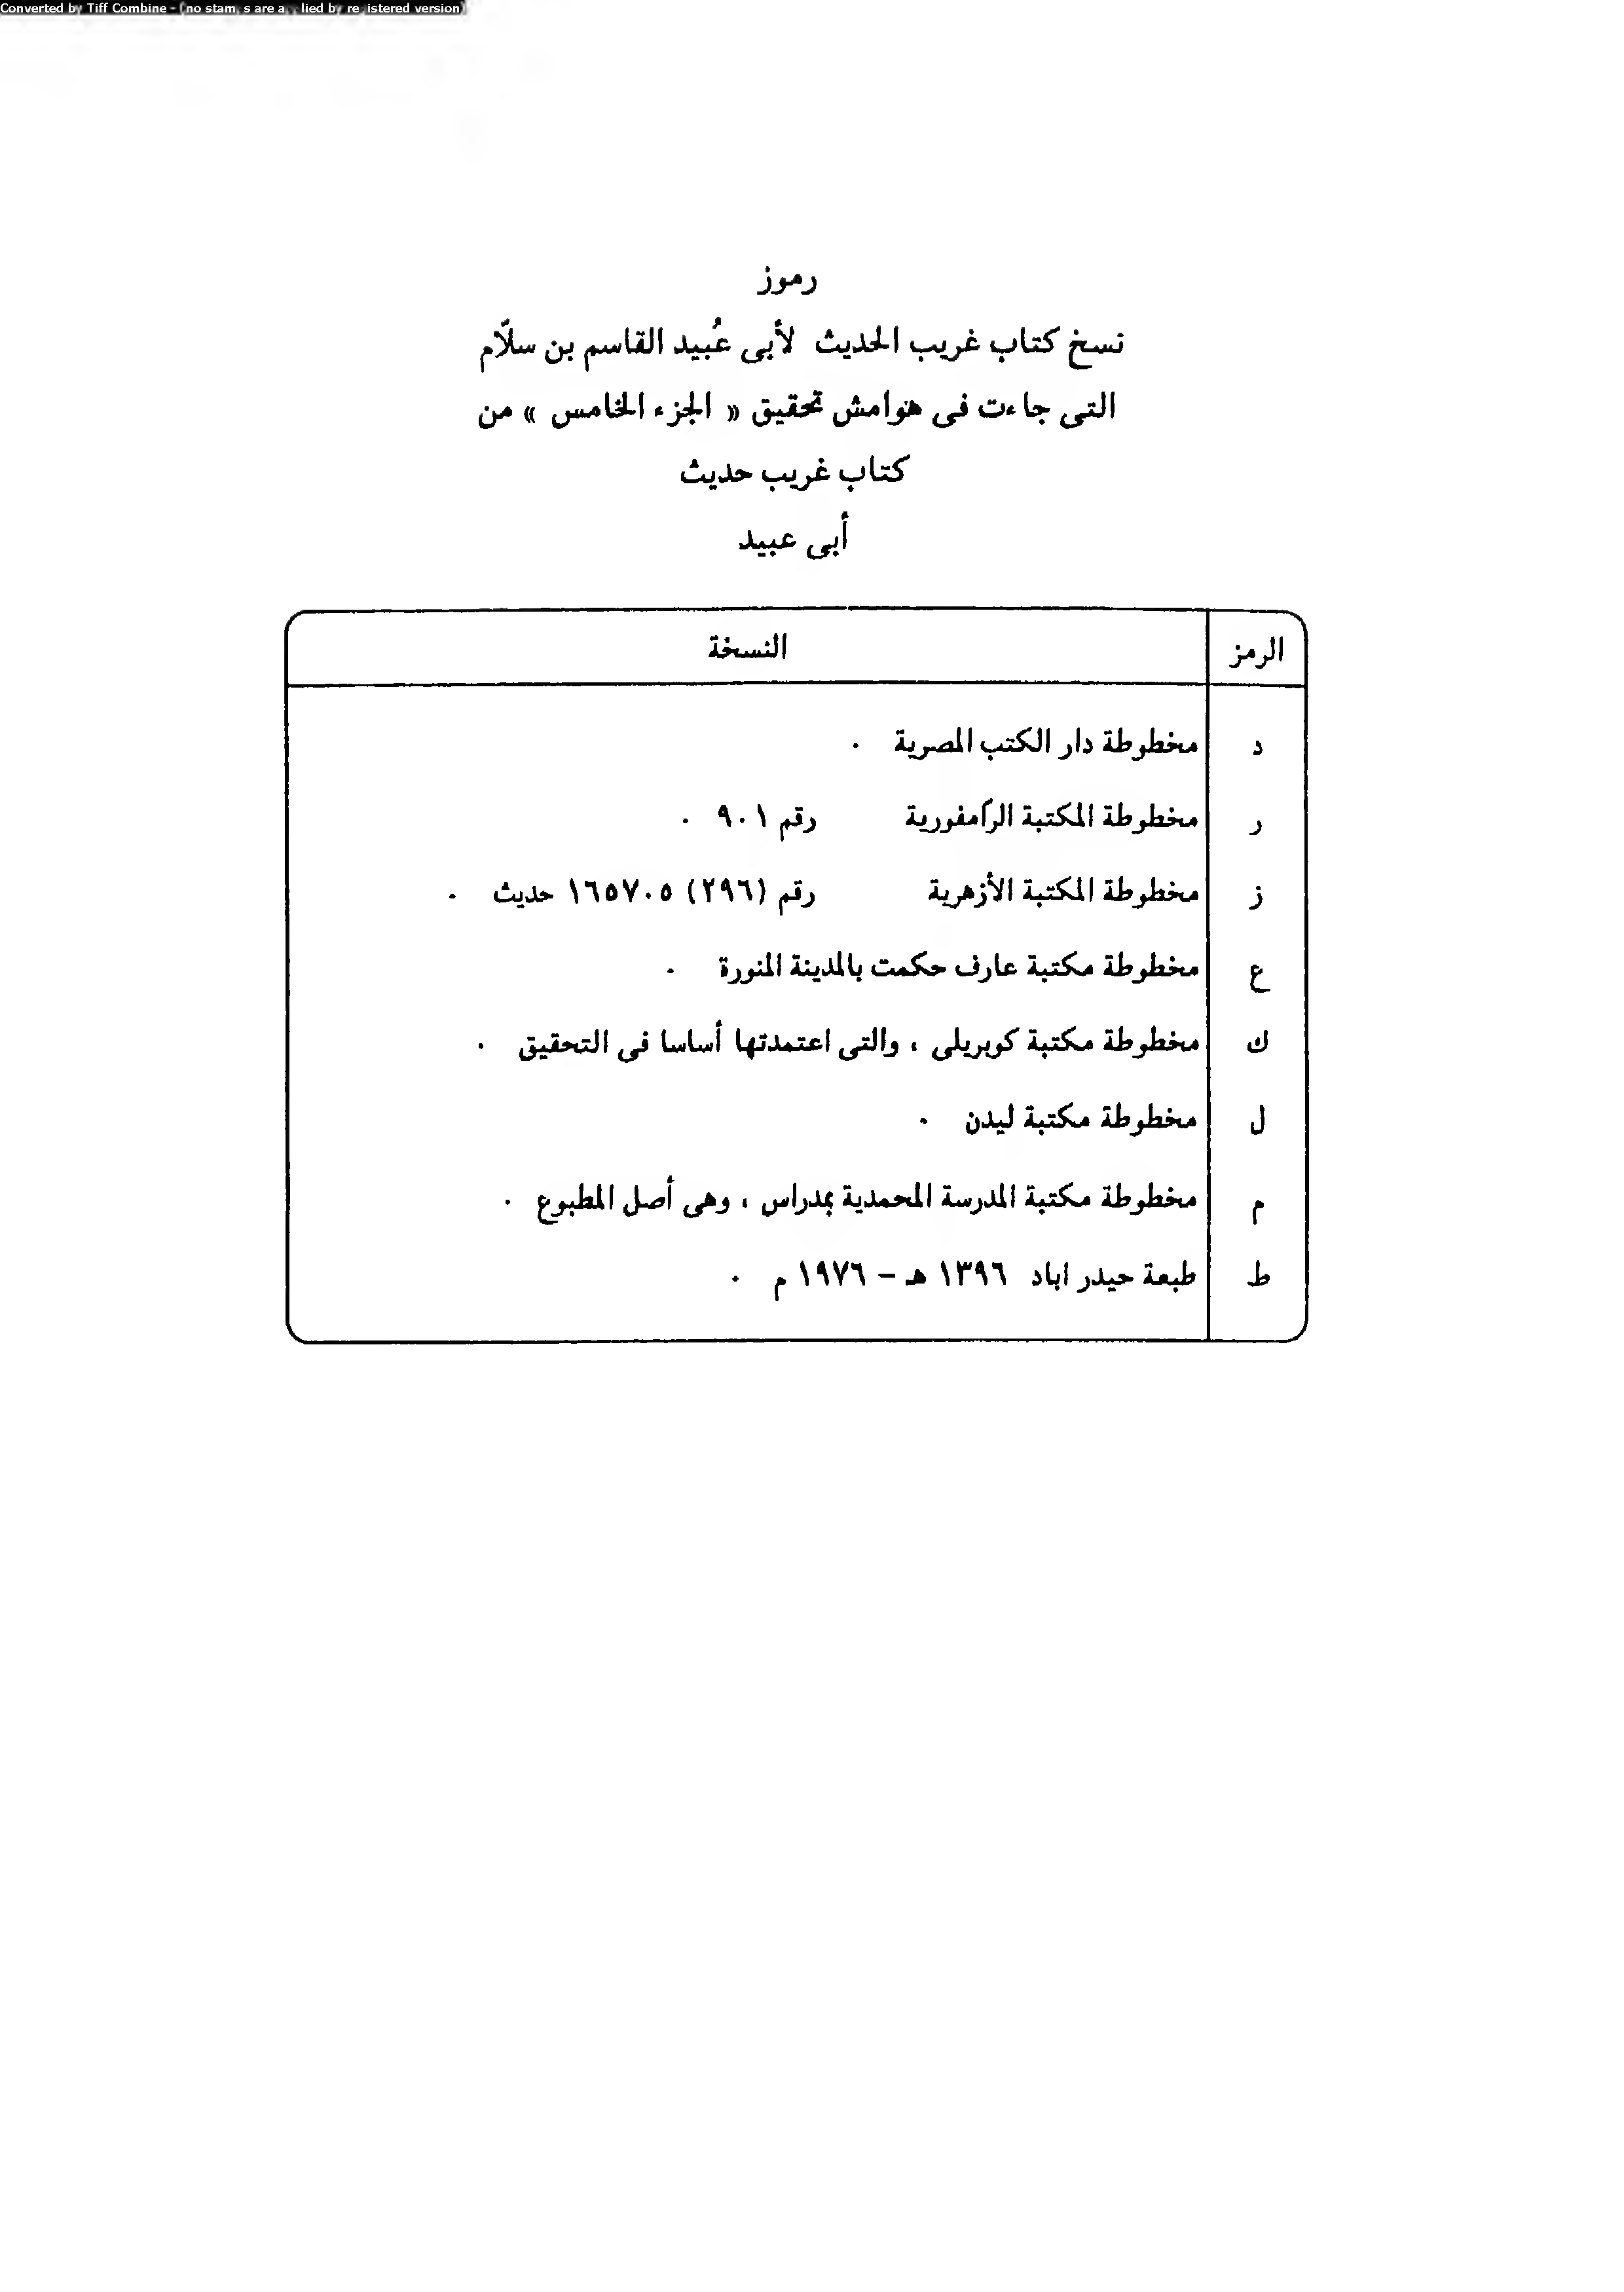 Converted by Tiff Combine - (no stamps are applied by registered version)
رموز
نسخ كتاب غريب الحديث لأبى عُبيد القاسم بن سلّام
التى جاءت فى هوامش تحقيق « الجزء الخامس » من
كتاب غريب حديث
أبى عبيد
الرمز النسخة
د مخطوطة دار الكتب المصرية .
ر مخطوطة المكتبة الرامفورية رقم ٩٠١ .
ز مخطوطة المكتبة الأزهرية رقم (٢٩٦) ١٦٥٧٠٥ حديث .
ع مخطوطة مكتبة عارف حكمت بالمدينة المنورة .
ك مخطوطة مكتبة كوبريلى ، والتى اعتمدتها أساسا فى التحقيق .
ل مخطوطة مكتبة ليدن .
م مخطوطة مكتبة المدرسة المحمدية بمدراس ، وهى أصل المطبوع .
ط طبعة حيدر اباد ١٣٩٦ هـ – ١٩٧٦ م .